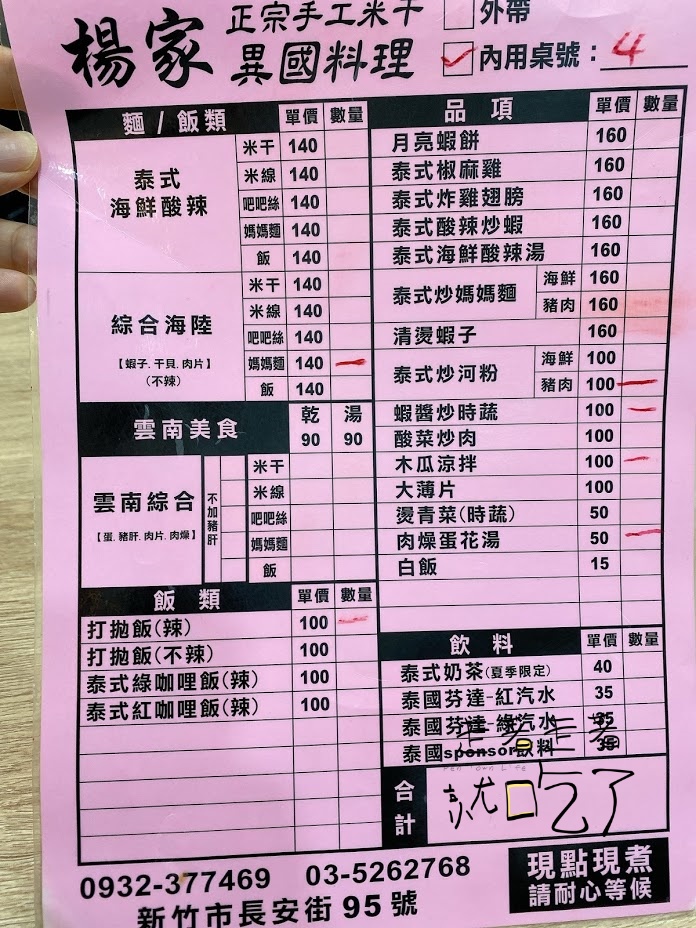 楊家 正宗手工米干 異國料理
外帶
內用桌號：4
麵/飯類 單價 數量
泰式海鮮酸辣
米干 140
米線 140
吧吧絲 140
媽媽麵 140
飯 140
綜合海陸
【蝦子.干貝.肉片】
(不辣)
米干 140
米線 140
吧吧絲 140
媽媽麵 140
飯 140
雲南美食 乾 90 湯 90
雲南綜合
【蛋.豬肝.肉片.肉燥】
不加豬肝
米干
米線
吧吧絲
媽媽麵
飯
飯類 單價 數量
打拋飯(辣) 100
打拋飯(不辣) 100
泰式綠咖哩飯(辣) 100
泰式紅咖哩飯(辣) 100
品項 單價 數量
月亮蝦餅 160
泰式椒麻雞 160
泰式炸雞翅膀 160
泰式酸辣炒蝦 160
泰式海鮮酸辣湯 160
泰式炒媽媽麵 海鮮 160
豬肉 160
清燙蝦子 160
泰式炒河粉 海鮮 100
豬肉 100
蝦醬炒時蔬 100
酸菜炒肉 100
木瓜涼拌 100
大薄片 100
燙青菜(時蔬) 50
肉燥蛋花湯 50
白飯 15
飲料 單價 數量
泰式奶茶(夏季限定) 40
泰國芬達-紅汽水 35
泰國芬達-綠汽水 35
泰國sponsor飲料 35
走著走著
合計
就口吃了
0932-377469 03-5262768
新竹市長安街95號
現點現煮
請耐心等候